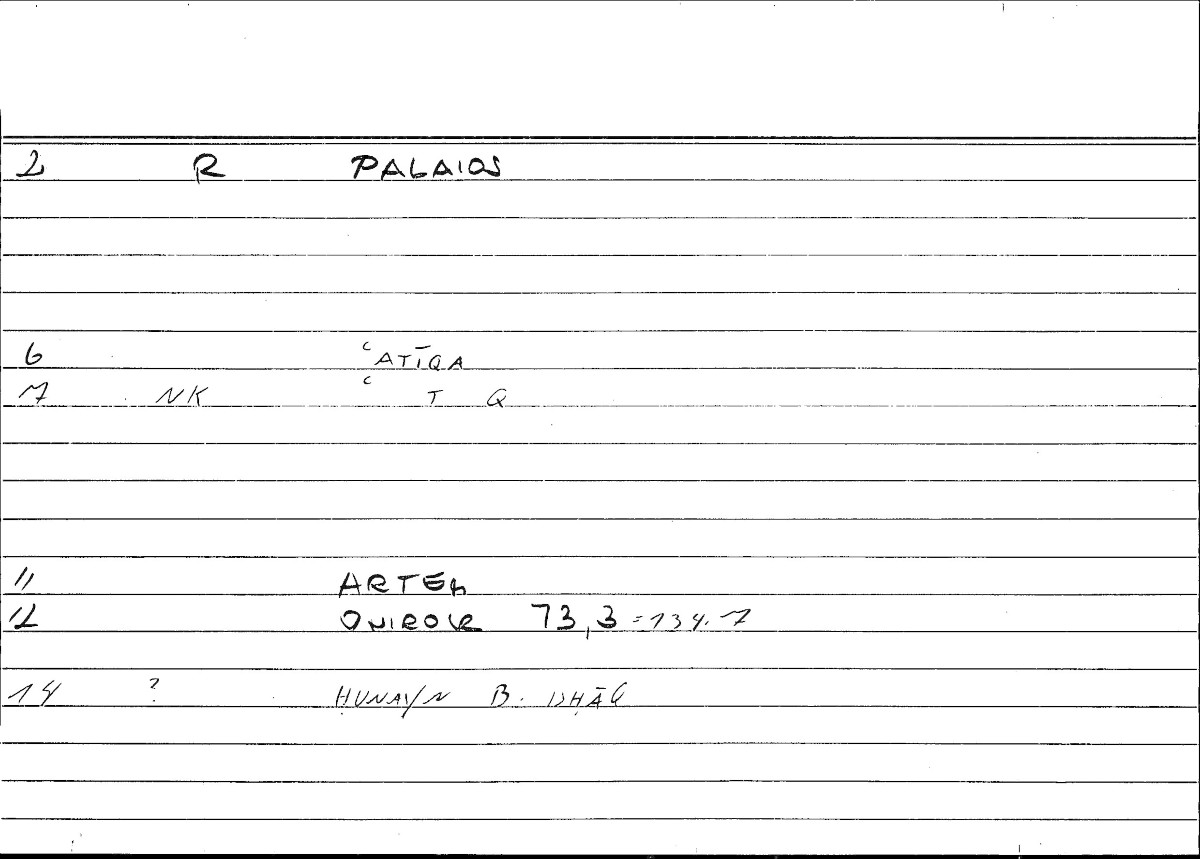 2 R PALAIOS
6 ʿATĪQA
7 NK ʿ T Q
11 ARTEM
12 ONIROCR 73,3 = 134.7
14 ? ḤUNAYN B. ISḤĀQ